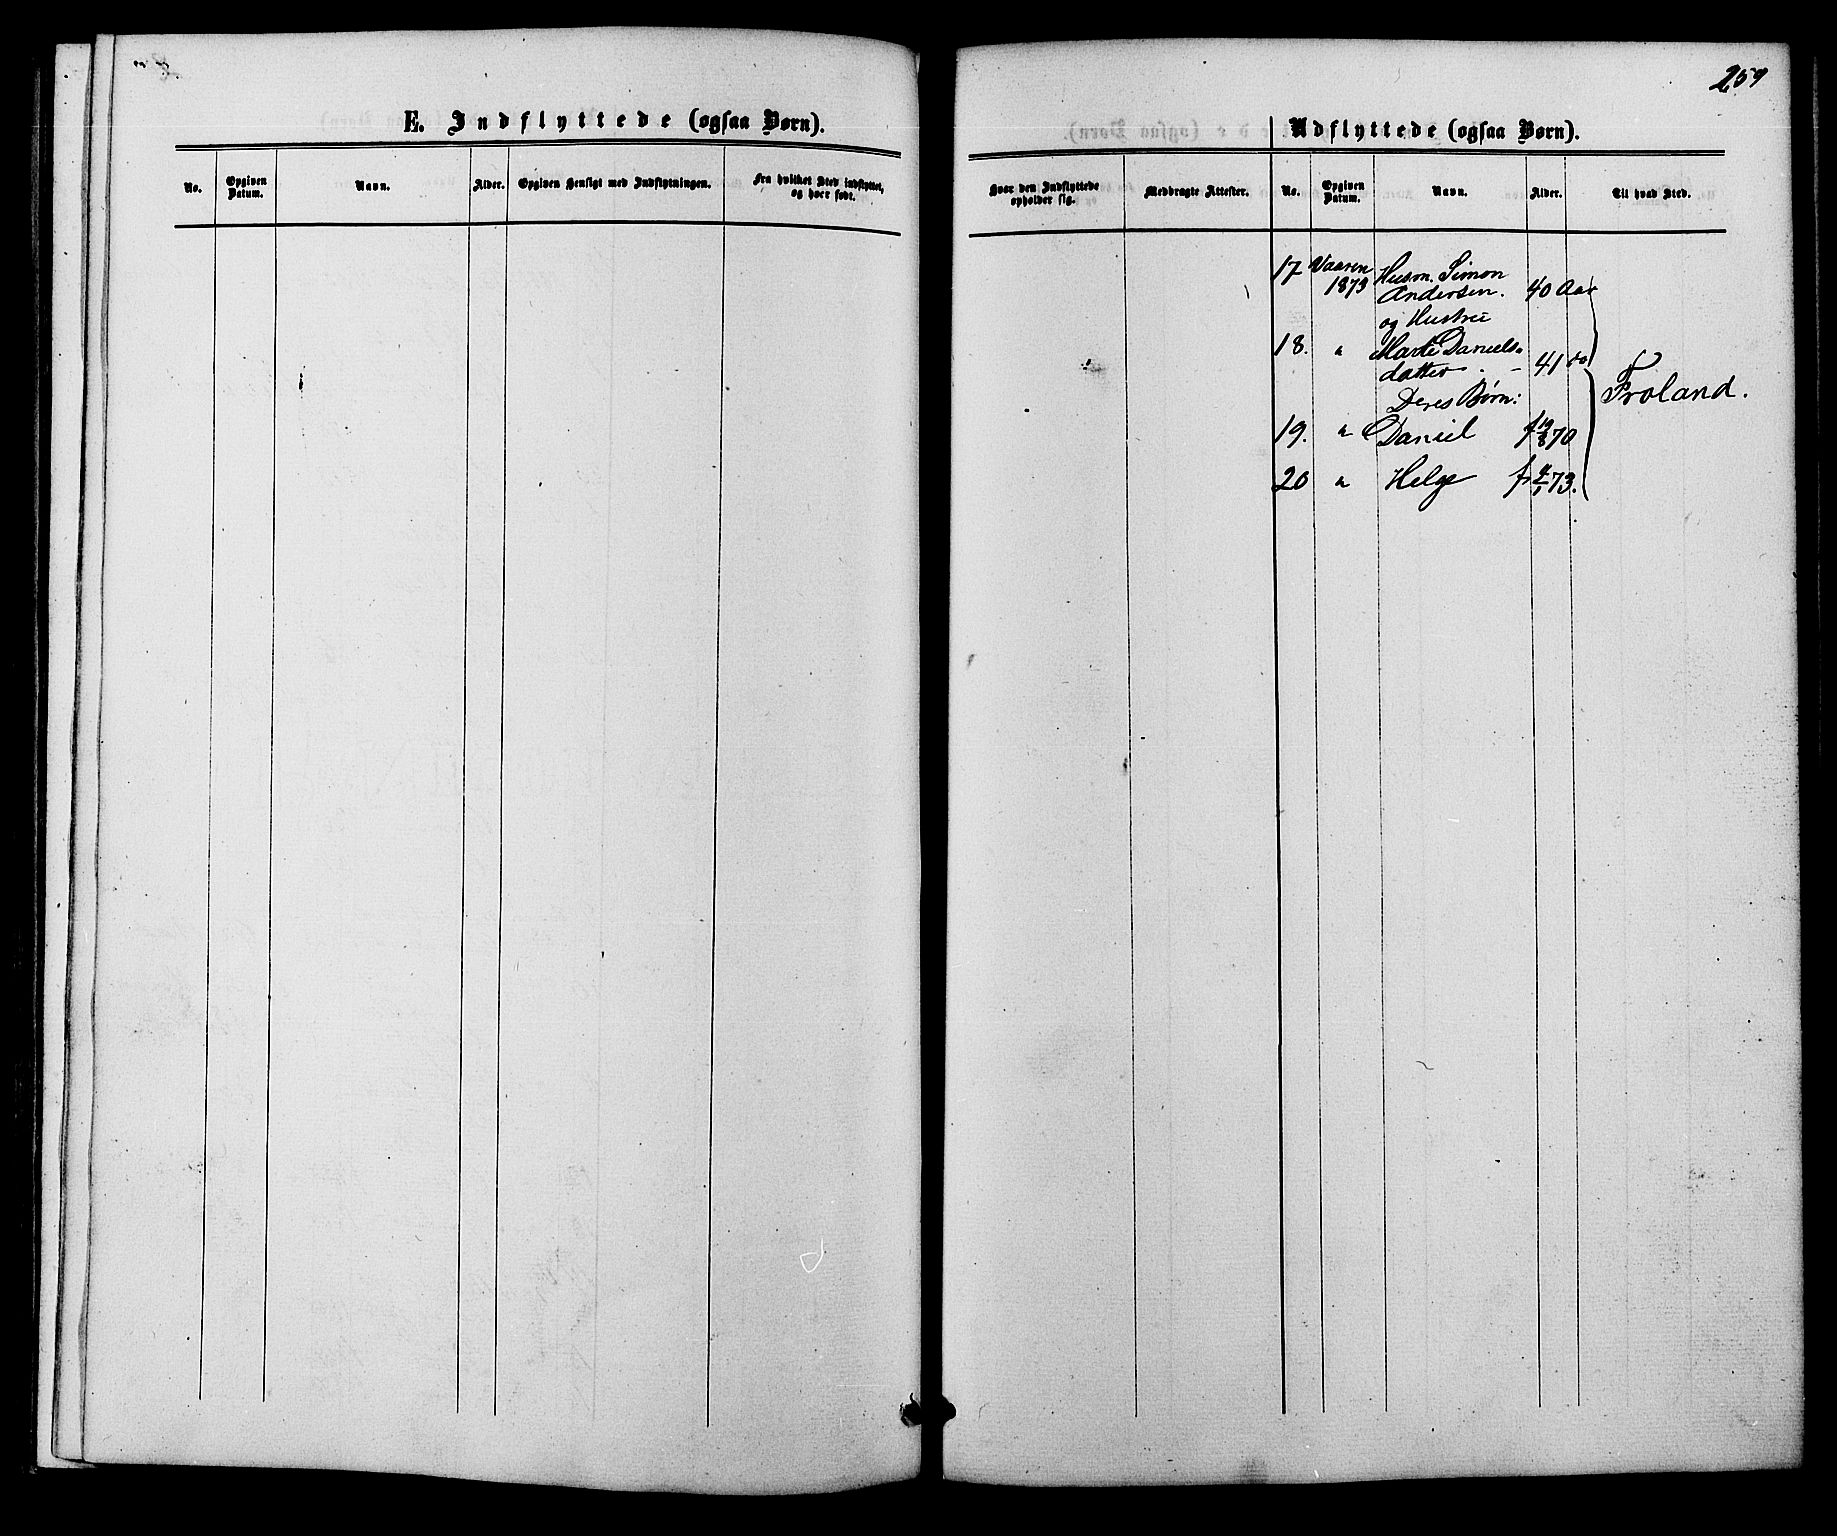 259
E. Indflyttede (ogsaa Børn).
No.
Opgiven Datum.
Navn.
Alder.
Opgiven Hensigt med Indflytningen.
Fra hvilket Sted indflyttet, og hvor født.
Hvor den Indflyttede opholder sig.
Medbragte Attester.
Udflyttede (ogsaa Børn).
No.
Opgiven Datum.
Navn.
Alder.
Til hvad Sted.
17 Vaaren 1873 Husm. Simon
Andersen. 40 Aar
og Hustru
18. " Marte Daniels-
datter - 41 do
Deres Børn:
Froland.
19. " Daniel f 19/8 70
20 " Helge f 4/1 73.